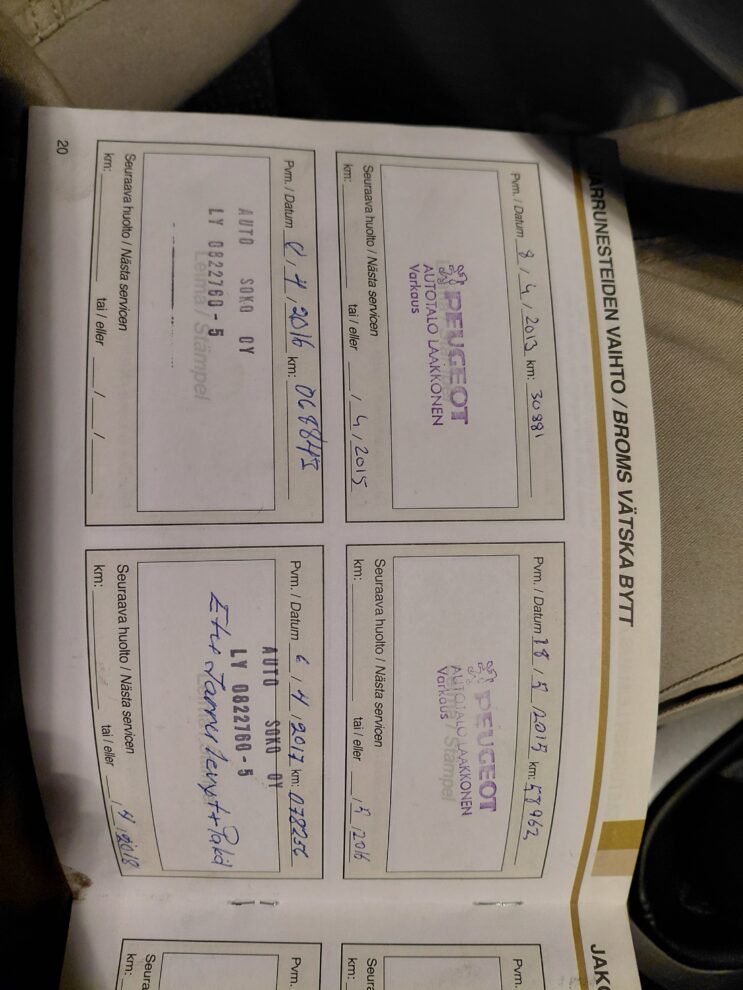 JARRUNESTEIDEN VAIHTO / BROMS VÄTSKA BYTT
Pvm. / Datum 8 / 4 / 2013 km: 30881
PEUGEOT
AUTOTALO LAAKKONEN
Varkaus
Seuraava huolto / Nästa servicen
km: tai / eller / 4 / 2015
Pvm. / Datum 18 / 5 / 2015 km: 58962
PEUGEOT
AUTOTALO LAAKKONEN
Varkaus
Seuraava huolto / Nästa servicen
km: tai / eller / 5 / 2016
Pvm. / Datum / 4 / 2016 km: 068845
AUTO SOKO OY
LY 0822760-5
Leima / Stämpel
Seuraava huolto / Nästa servicen
km: tai / eller / /
Pvm. / Datum 6 / 4 / 2017 km: 078256
AUTO SOKO OY
LY 0822760-5
Etu Jarrulevyt + Palat
Seuraava huolto / Nästa servicen
km: tai / eller / 4 / 2018
20
JAKO
Pvm.
Seura
km:
Pvm.
Seura
km: